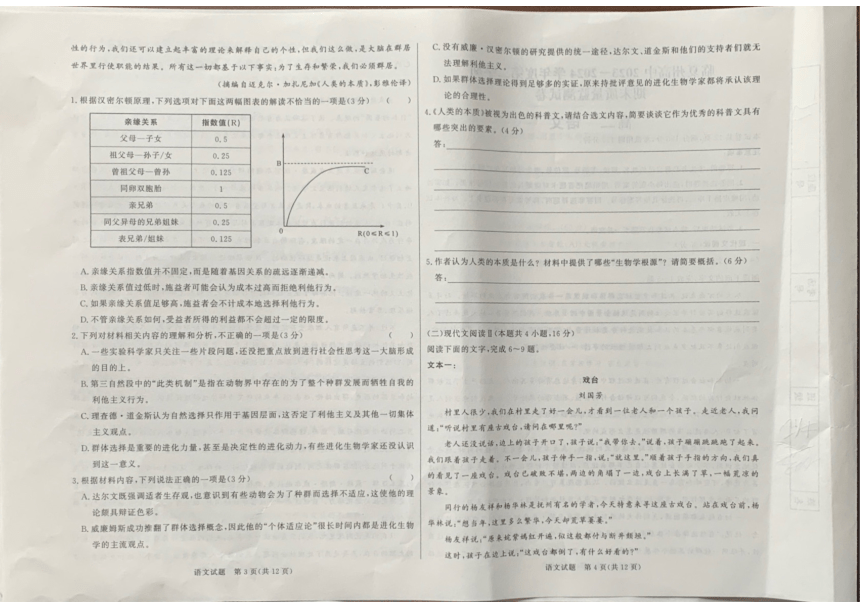 性的行为,我们还可以建立起丰富的理论来解释自己的个性,但我们这么做,是大脑在群居
世界里行使职能的结果。所有这一切都基于以下事实:为了生存和繁荣,我们必须群居。
(摘编自迈克尔·加扎尼加《人类的本质》,彭雅伦译)
1.根据汉密尔顿原理,下列选项对下面这两幅图表的解读不恰当的一项是(3分) ( )
亲缘关系 指数值(R)
父母—子女 0.5
祖父母—孙子/女 0.25
曾祖父母—曾孙 0.125
同卵双胞胎 1
亲兄弟 0.5
同父异母的兄弟姐妹 0.25
表兄弟/姐妹 0.125
B
C
0
R(0≤R≤1)
A.亲缘关系指数值并不固定,而是随着基因关系的疏远逐渐递减。
B.亲缘关系值过低时,施益者可能会认为成本过高而拒绝利他行为。
C.如果亲缘关系值足够高,施益者会不计成本地选择利他行为。
D.不管亲缘关系如何,受益者所得的利益都不会超过一定的限度。
2.下列对材料相关内容的理解和分析,不正确的一项是(3分) ( )
A.一些实验科学家只关注一些片段问题,还没把重点放到进行社会性思考这一大脑形成
的目的上。
B.第三自然段中的“此类机制”是指在动物界中存在的为了整个种群发展而牺牲自我的
利他主义行为。
C.理查德·道金斯认为自然选择只作用于基因层面,这否定了利他主义及其他一切集体
主义观点。
D.群体选择是重要的进化力量,甚至是决定性的进化动力,有些进化生物学家还没认识
到这一意义。
3.根据材料内容,下列说法正确的一项是(3分) ( )
A.达尔文既强调适者生存观,也意识到有些动物会为了种群而选择不适应,这使他的理
论颇具辩证色彩。
B.威廉姆斯成功推翻了群体选择概念,因此他的“个体适应论”很长时间内都是进化生物
学的主流观点。
语文试题 第3页(共12页)
C.没有威廉·汉密尔顿的研究提供的统一途径,达尔文、道金斯和他们的支持者们就无
法理解利他主义。
D.如果群体选择理论得到足够多的实证,原来持批评意见的进化生物学家都将承认该理
论的合理性。
4.《人类的本质》被视为出色的科普文,请结合选文内容,简要谈谈它作为优秀的科普文具有
哪些突出的要素。(4分)
答:
5.作者认为人类的本质是什么?材料中提供了哪些“生物学根源”?请简要概括。(6分)
答:
(二)现代文阅读Ⅱ(本题共4小题,16分)
阅读下面的文字,完成6~9题。
文本一:
戏台
刘国芳
村里人很少,我们在村里走了好一会儿,才看到一位老人和一个孩子。走近老人,我问
道:“听说村里有座古戏台,请问在哪里呢?”
老人还没说话,边上的孩子开口了,孩子说:“我带你去。”说着,孩子蹦蹦跳跳跑了起来。
我们跟着孩子走着。不一会儿,孩子伸手一指,说:“就这里。”顺着孩子手指的方向,我们真
的看见了一座戏台。戏台已破败不堪,两边的角塌了一边,戏台上长满了草,一幅荒凉的
景象。
同行的杨友祥和杨华林是抚州有名的学者,今天特意来寻这座古戏台。站在戏台前,杨
华林说:“想当年,这里多么繁华,今天却荒草萋萋。”
杨友祥说:“原来姹紫嫣红开遍,似这般都付与断井颓垣。”
这时,孩子在边上说:“这戏台都倒了,有什么好看的?”
语文试题 第4页(共12页)